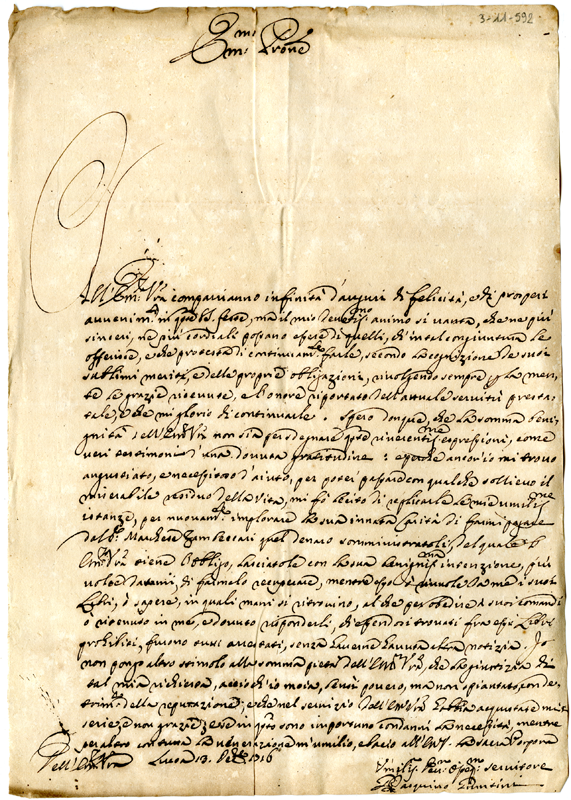 3-11-592
Em.mo
e Prone
All'Em.za V.ra compariranno infinità d'auguri di felicità, e di prosperi
avvenim.ti in queste S.te feste, ma il mio animo si vanta, che ne più
sinceri, ne più cordiali possano essere di quelli, che in tal congiuntura le
offerisce, e che protesta di continuam.te farle, secondo de suoi
sublimi meriti, e delle proprie obligazioni, rivolgendo sempre per la men-
te le grazie ricevute, e l'onore riportato dell'attuale servitù presta-
tale, e che mi glorio di continuarle. Spero dunque, che la somma beni-
gnità dell'Em.za V.ra non sia per sdegnare queste riverentis.me espressioni, come
veri testimoni d'una dovuta gratitudine: e perche ancor'io mi trovo
angustiato, e necessitoso d'aiuto, per poter passare con qualche sollievo il
miserabile residuo della vita, mi fò lecito di replicarle le mie umilis.me
istanze, per nuovam.te implorare la sua innata carità di farmi pagare
dal S.r Marchese quel denaro somministratoli, del quale
Em.za V.ra tiene l'obligo, lasciatole con la sua benignis.ma intenzione, più
volte datami, di farmelo recuperare, mentre da me i suoi
libri, ò sapere, in quali mani si ritrovino, al che per obedire a suoi comandi
ò ritenuto in me, e dovuto risponderli, ch'essendosi trovati fra essi libri
prohibiti, furono tutti arrestati, senza haverne havuta altra notizia. Io
non porgo altro stimolo alla somma pietà dell'Em.za V.ra, che la giustizia di
tal mia richiesta, acciò ch'io moia, bensì povero, ma non spiantato, con de-
trim.to della reputazione; e che nel servizio dell'Em.za V.ra habbia acquistate mi-
serie, e non grazie; e se in q.to sono importuno condanni la necessità, mentre
per altro con tutta la venerazione m'umilio, e bacio all'Em.za V. la sacra Porpora
Dell'Em.za V.ra
Lucca 13. 1716
Umilis.mo Dev.mo Obblig.mo servitore
Pasquino